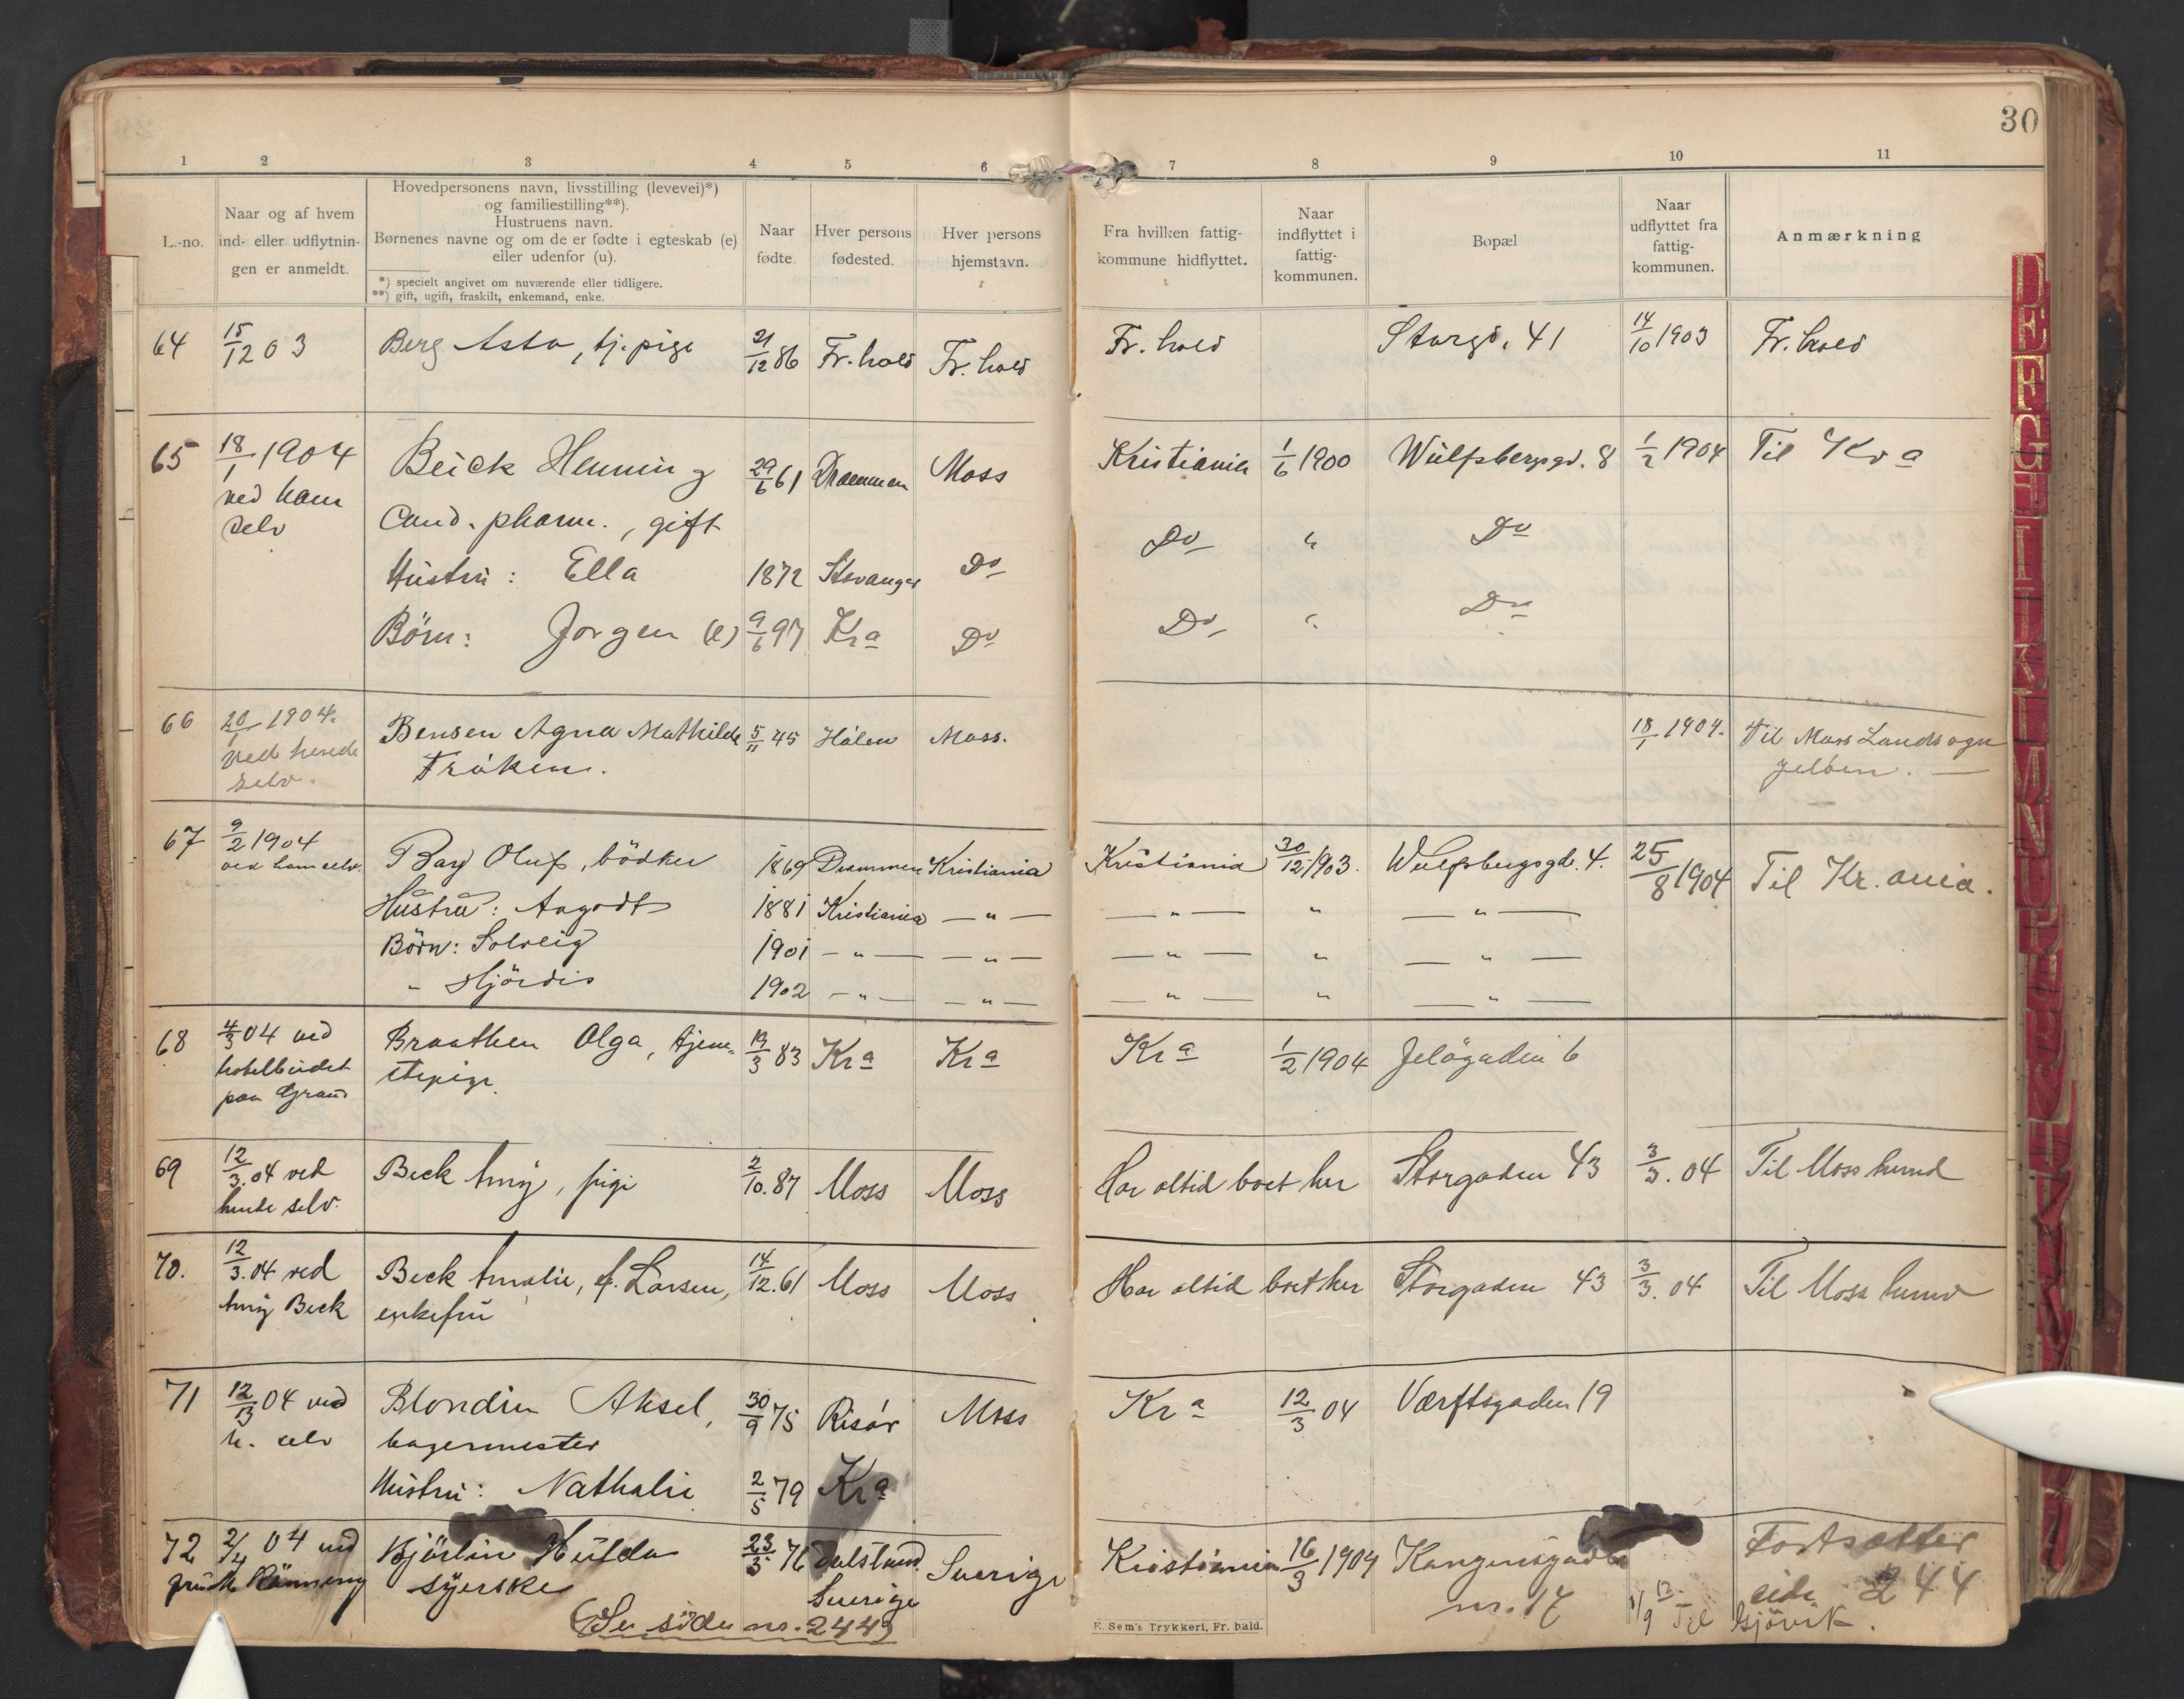 30
1 2 3 4 5 6 7 8 9 10 11
L.-no.
Naar og af hvem
ind- eller udflytnin-
gen er anmeldt.
Hovedpersonens navn, livsstilling (levevei)*)
og familiestilling**).
Hustruens navn.
Børnenes navne og om de er fødte i egteskab (e)
eller udenfor (u).
*) specielt angivet om nuværende eller tidligere.
**) gift, ugift, fraskilt, enkemand, enke.
Naar
fødte.
Hver persons
fødested.
Hver persons
hjemstavn.
Fra hvilken fattig-
kommune hidflyttet.
Naar
indflyttet i
fattig-
kommunen.
Bopæl
Naar
udflyttet fra
fattig-
kommunen.
Anmærkning
64 15/12 03 Berg Asta, tj. pige 21/12 86 Fr. hald Fr. hald Fr. hald Storgd. 41 14/10 1903 Fr. hald
65 18/1 1904 Beick Henning 29/6 61 Drammen Moss Kristiania 1/6 1900 Wülfsbergsgd. 8 1/2 1904 Til Kra
ved ham
selv
Cand. pharm., gift
Hustru: Ella 1872 Stavanger Do Do " Do
Børn: Jorgen (e) 9/6 97 Kra Do Do " Do
66 20/1 1904. Bensen Agna Mathilde 5/11 45 Hölen Moss. 18/1 1904. Til Moss Landsogn
ved hende
selv.
Fröken. Jelöen.
67 9/2 1904 Oluf, bödker 1869 Drammen Kristiania Kristiania 30/12 1903. Wulfsbergsgd. 4. 25/8 1904 Til Kr.ania.
ved ham selv.
Hustru: Aagodt 1881 Kristiania — " — — " — " — " —
Börn: Solveig 1901 — " — — " — — " — " — " —
" Hjördis 1902 — " — — " — — " — " — " —
68 4/3 04 ved Braathen Olga, tjene- 19/3 83 Kra Kra Kra 1/2 1904 Jelögaden 6
hotelbudet
paa Grand
stepige.
69 12/3. 04 ved Beck Amy, pige 2/10. 87 Moss Moss Har altid boet her Storgaden 43 3/3. 04 Til Moss herred
hende selv.
70. 12/3. 04 ved Beck Amalie, f. Larsen, 14/12. 61 Moss Moss Har altid boet her Storgaden 43 3/3. 04 Til Moss herred
Amy Beck enkefru
71 12/13 04 ved Blondin Aksel, 30/9 75 Risør Moss Kra 12/3 04 Værftsgaden 19
h. selv bagermester
Hustru: Nathalie 2/5 79 Kra
72 2/4 04 ved Bjørlin Hulda 23/3 76 Dalsland Sverige Kristiania 16/3 1904 Kongensgade Fortsætter
Rönning syerske Sverige nr. 17 side 244
(Se side no. 244) Til Gjövik.
E. Sem's Trykkeri, Fr. hald.
D E F G H I J K L M N O P